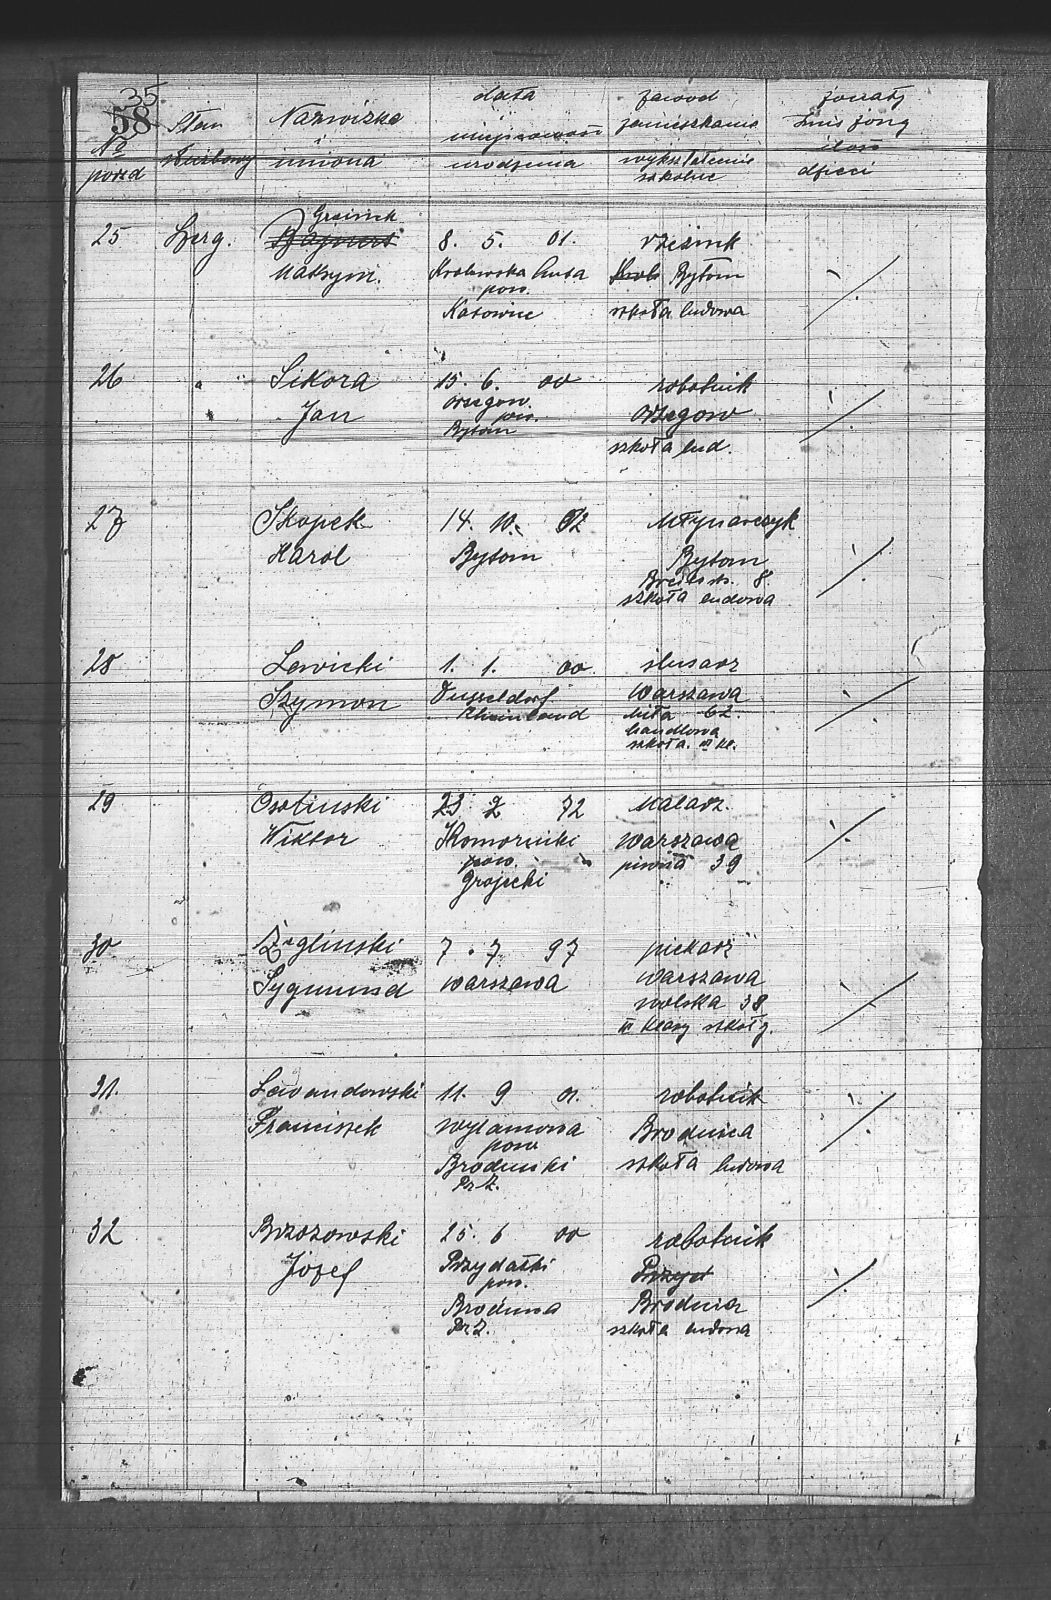 35
58
No porzd
Stan służbowy
Nazwisko imiona
data miejscowość urodzenia
zawód zamieszkania wykształcenie szkolne
żonaty Imię żony ilość dzieci
25 Szerg.
Maksym.
8. 5. 01.
Krolewska Huta
pow.
Katowice
rzeźnik
Bytom
szkoła ludowa
26 "
Sikora
Jan
15. 6. 00
Orzegow
pow.
Bytom
robotnik
Orzegow
szkoła lud.
27
Skopek
Karol
14. 10. 02
Bytom
Młynarczyk
Bytom
8.
szkoła ludowa
28
Lewicki
Szymon
1. 1. 00
Dusseldorf
Rheinland
ślusarz
Warszawa
Miła 62.
handlowa
szkoła. kl.
29
Osolinski
Wiktor
23 2 72
Komorniki
pow.
Grojecki
Malarz.
Warszawa
piwna 39
30
Żeglinski
Sygmund
7. 7 97
Warszawa
piekarz
Warszawa
wolska 38
III klasy szkoły.
31.
Lewandowski
Franciszek
11. 9 01.
pow
Brodnicki
Pr Z.
robotnik
Brodnica
szkoła ludowa
32
Brzozowski
Józef
25. 6 00
Przydatki
pow.
Brodnica
Pr Z.
robotnik
Przyd
Brodnica
szkoła ludowa